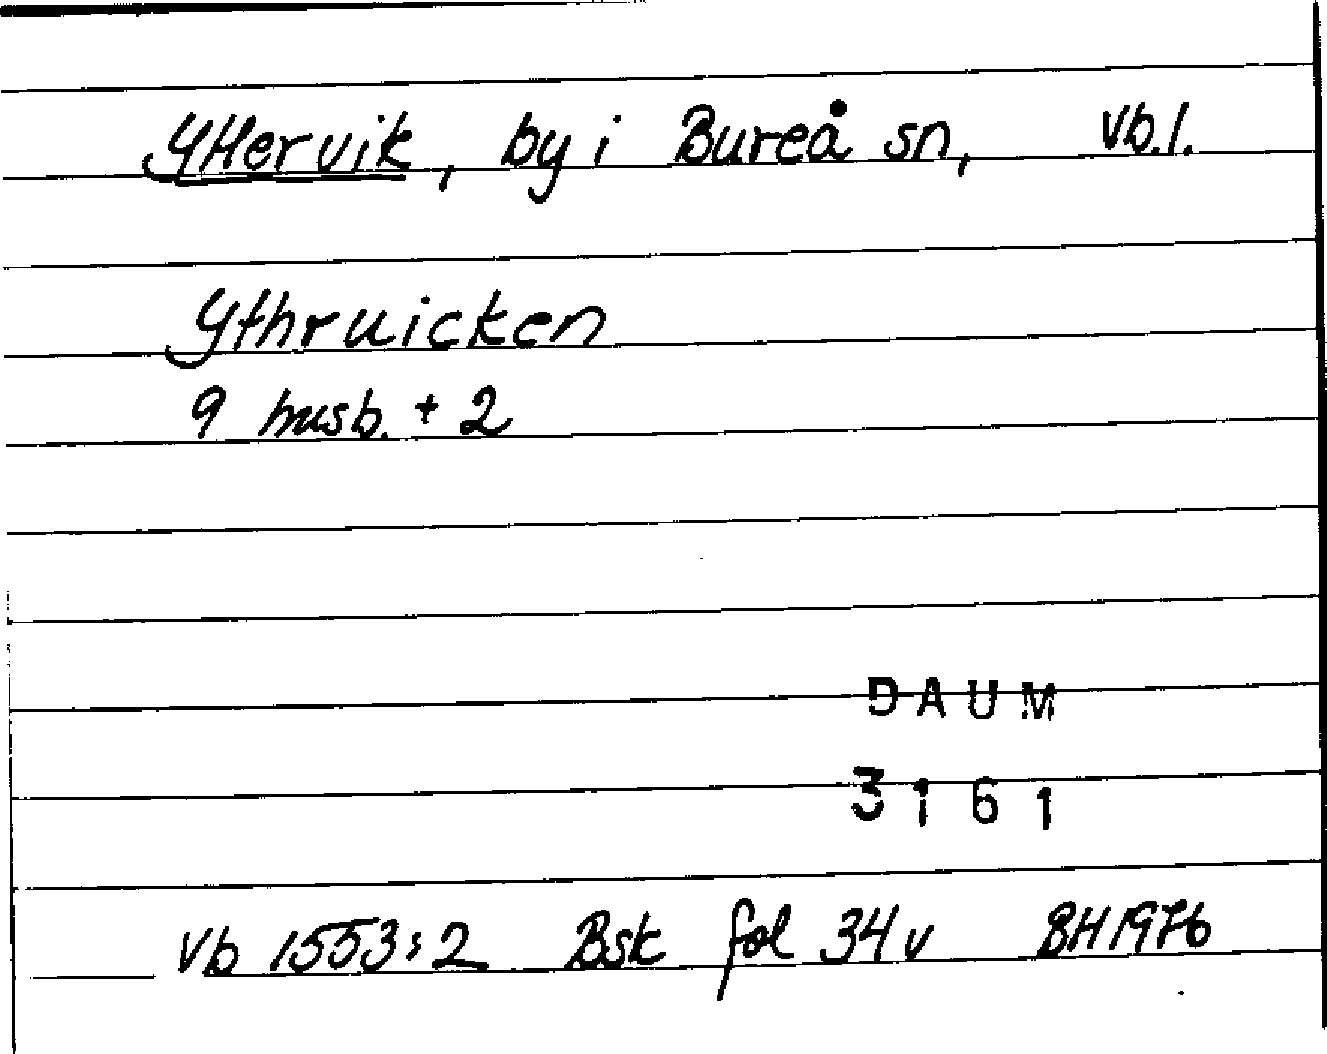 Yttervik, by i Bureå sn, Vb.l.
Ythruicken
9 husb. + 2
DAUM
3161
Vb 1553:2 Bsk fol 34 v BH 1976